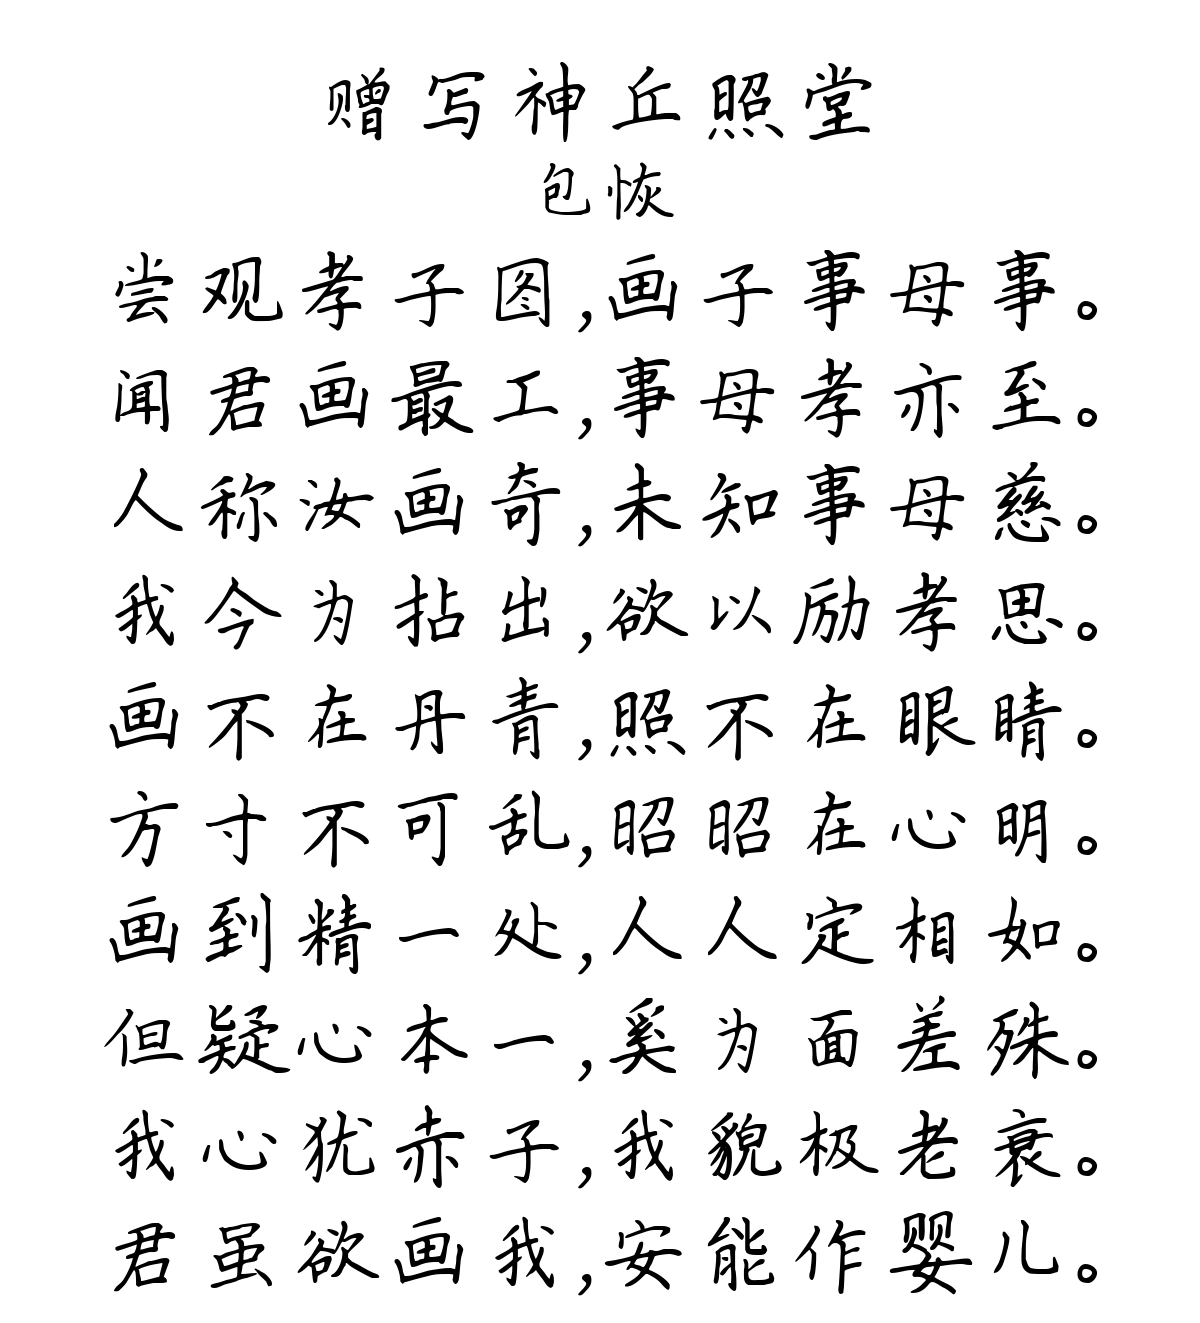 赠写神丘照堂
包恢
尝观孝子图,画子事母事。
闻君画最工,事母孝亦至。
人称汝画奇,未知事母慈。
我今为拈出,欲以励孝思。
画不在丹青,照不在眼睛。
方寸不可乱,昭昭在心明。
画到精一处,人人定相如。
但疑心本一,奚为面差殊。
我心犹赤子,我貌极老衰。
君虽欲画我,安能作婴儿。